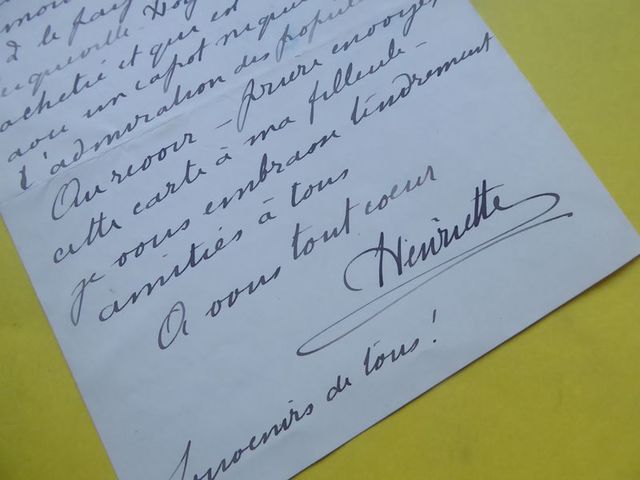 à le pays
acheté et qui est
avec un capot
l'admiration des popula
Au revoir - Prière envoyer
cette carte à ma filleule -
je vous embrasse tendrement
amitiés à tous
A vous tout coeur
Henriette
Souvenirs de tous !